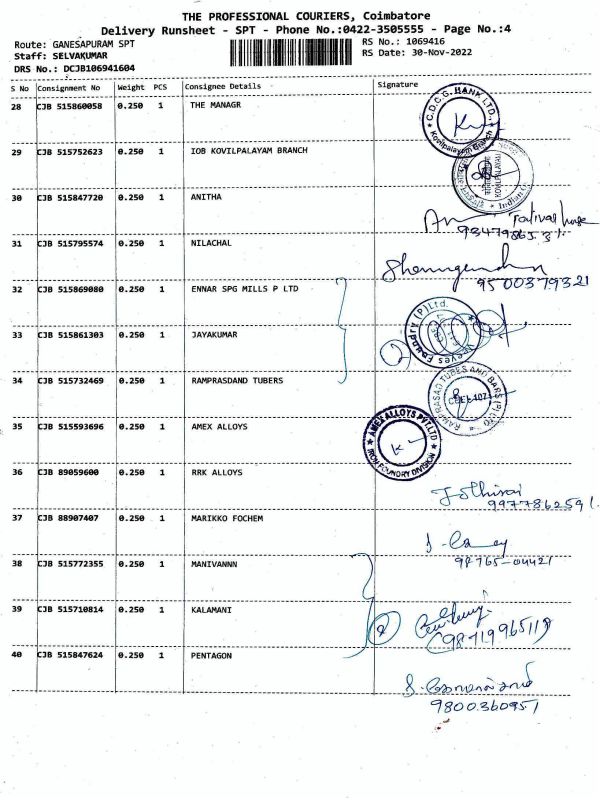 THE PROFESSIONAL COURIERS, Coimbatore
Delivery Runsheet - SPT - Phone No.:0422-3505555 - Page No.:4
Route: GANESAPURAM SPT
RS No.: 1069416
Staff: SELVAKUMAR
RS Date: 30-Nov-2022
DRS No.: DCJB106941604
S No Consignment No Weight PCS Consignee Details Signature
28 CJB 515860058 0.250 1 THE MANAGR
C.D.C.C. BANK LTD., Kovilpalayam Branch
29 CJB 515752623 0.250 1 IOB KOVILPALAYAM BRANCH
KOVILPALAYAM
30 CJB 515847720 0.250 1 ANITHA
31 CJB 515795574 0.250 1 NILACHAL
9500379321
32 CJB 515869080 0.250 1 ENNAR SPG MILLS P LTD
33 CJB 515861303 0.250 1 JAYAKUMAR
Veeyes Foundry (P) Ltd.
34 CJB 515732469 0.250 1 RAMPRASDAND TUBERS
RAMPRASAD TUBES AND BARS (P) LTD
35 CJB 515593696 0.250 1 AMEX ALLOYS
AMEX ALLOYS PVT.LTD
IRON FOUNDRY DIVISION
36 CJB 89059600 0.250 1 RRK ALLOYS
9977862591
37 CJB 88907407 0.250 1 MARIKKO FOCHEM
98765-04421
38 CJB 515772355 0.250 1 MANIVANNN
39 CJB 515710814 0.250 1 KALAMANI
9871996511
40 CJB 515847624 0.250 1 PENTAGON
9800360951